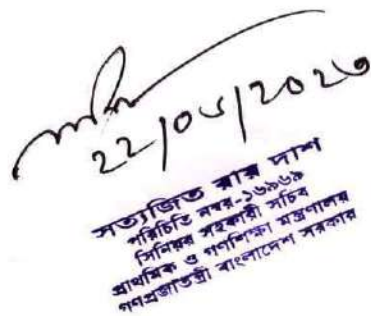 ২২/০৮/২০২৩
সত্যজিত রায় দাশ
পরিচিতি নম্বর-১৬৯৬৯
সিনিয়র সহকারী সচিব
প্রাথমিক ও গণশিক্ষা মন্ত্রণালয়
গণপ্রজাতন্ত্রী বাংলাদেশ সরকার